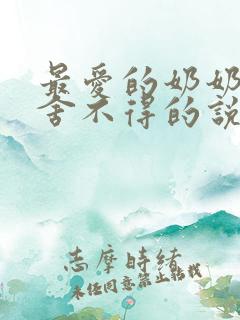 最愛的奶奶
舍不得的說
志摩時緒
未經同意禁止転我